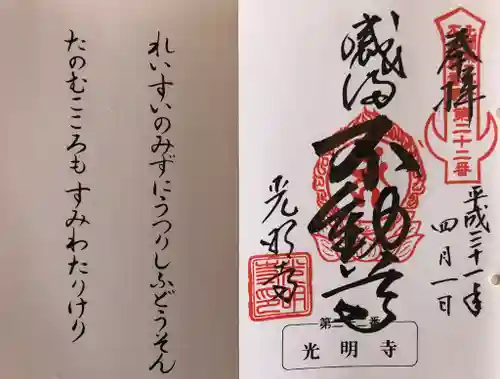 奉拝
第二十二番
平成三十一年
四月一日
感得
不動尊
光明寺
光明寺
れいすいのみずにうつりしふどうそん
たのむこころもすみわたりけり